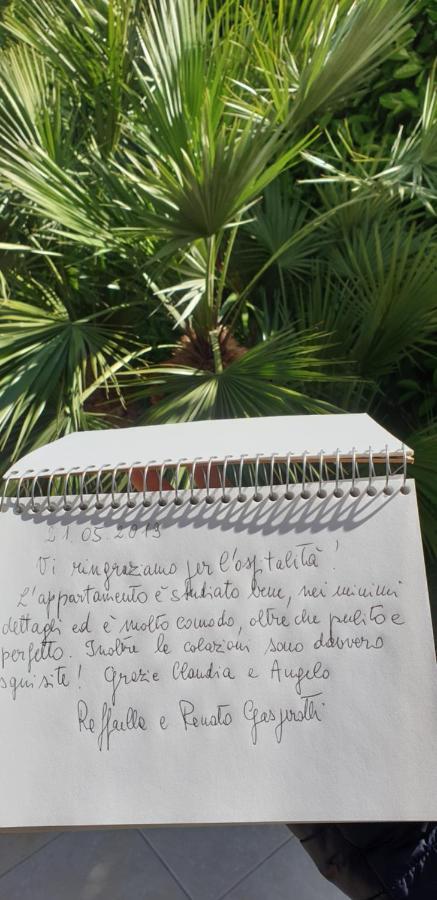 21.05.2019
Vi ringraziamo per l'ospitalità!
L'appartamento è studiato bene, nei minimi
dettagli ed è molto comodo, oltre che pulito e
perfetto. Inoltre le colazioni sono davvero
squisite! Grazie Claudia e Angelo
Raffaella e Renato